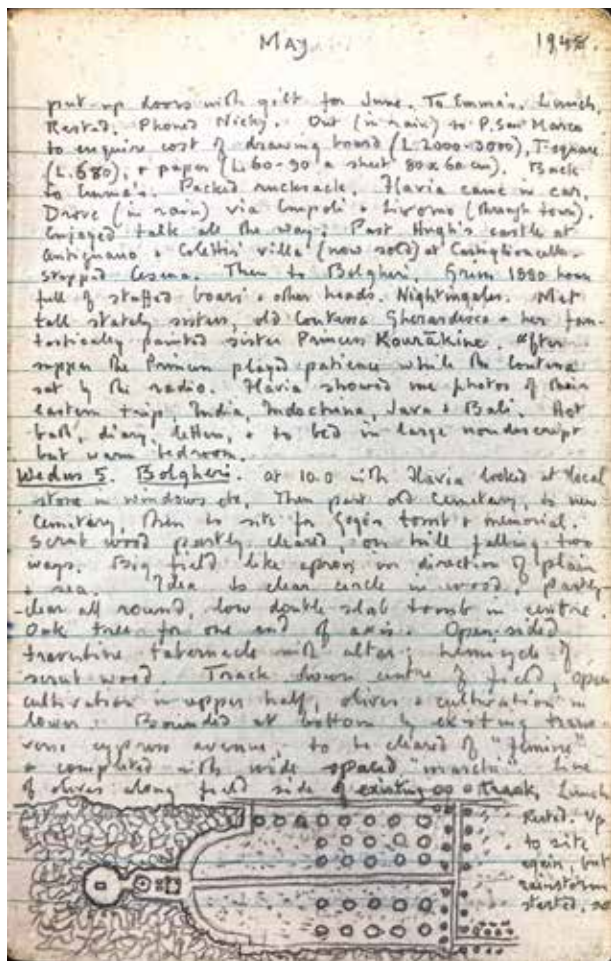 May 1948.
put up doors with gilt for June. To Emma's. Lunch.
Rested. Phoned Nicky. Out (in rain) to P. San Marco
to enquire cost of drawing board (L.2000-3000), T-square
(L.680), + paper (L.60-90 a sheet 80x60 cm). Back
to Emma's. Packed rucksack. Flavia came in car.
Drove (in rain) via Empoli + Livorno (through town).
Enjoyed talk all the way. Past Hugh's castle at
Antignano + Coletti's villa (now sold) at Castiglioncello.
Stopped Cecina. Then to Bolgheri. Grim 1880 house
full of stuffed boars + other heads. Nightingales. Met
tall stately sisters, old Contessa Gherardesca + her fan-
tastically painted sister Princess Kourákine. After
supper the Princess played patience while the Contessa
sat by the radio. Flavia showed me photos of their
eastern trip, India, Indochina, Java + Bali. Hot
bath, diary, letters, + to bed in large nondescript
but warm bedroom.
Wednes 5. Bolgheri. At 10.0 with Flavia looked at local
stone in windows etc. Then past old Cemetery, to new
Cemetery, then to site for tomb + memorial.
Scrub wood partly cleared, on hill falling two
ways. Big field like apron in direction of plain
+ sea. Idea to clear circle in wood, partly
clear all round, low double slab tomb in centre.
Oak tree for one end of axis. Open sided
travertine tabernacle with altar; hemicycle of
scrub wood. Track down centre of field, open
cultivation in upper half, olives + cultivation in
lower. Bounded at bottom by existing trans-
verse cypress avenue, to be cleared of "femine"
+ completed with wide spaced "maschi". Line
of olives along field side of existing track. Lunch.
Rested. Up
to site
again, but
rainstorm
started, so